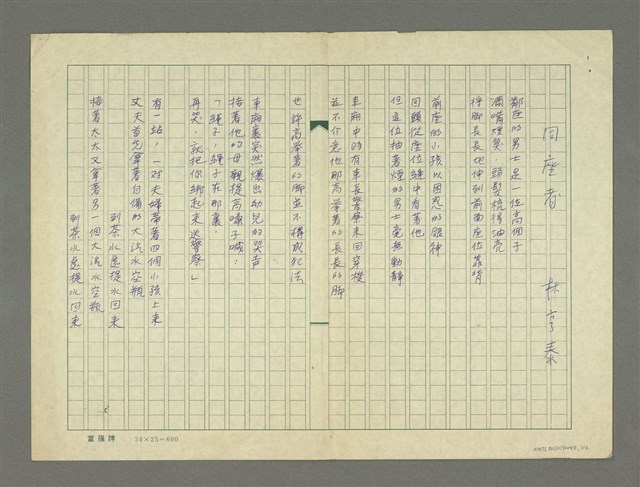 同座者
林亨泰
鄰座的男士是一位高個子
滿嘴煙臭，頭髮梳得油亮
將脚長長地伸到前面座位靠背
前座的小孩以困惑的眼神
回頭從座位縫中看著他
但這位抽著煙的男士毫無動靜
車廂中時有車長警察來回穿梭
並不介意他那高舉著的長長的脚
也許高舉著的脚並不構成犯法
車廂裏突然爆出幼兒的哭声
接著他的母親提高嗓子喊：
「繩子，繩子在那裏，
再哭，就把你綁起來送警察」
有一站，一对夫婦帶著四個小孩上来
丈夫首先拿著自備的大汽水空瓶
到茶水壺提水回来
接著太太又拿著另一個大汽水空瓶
到茶水壺提水回来
富強牌 24×25=600